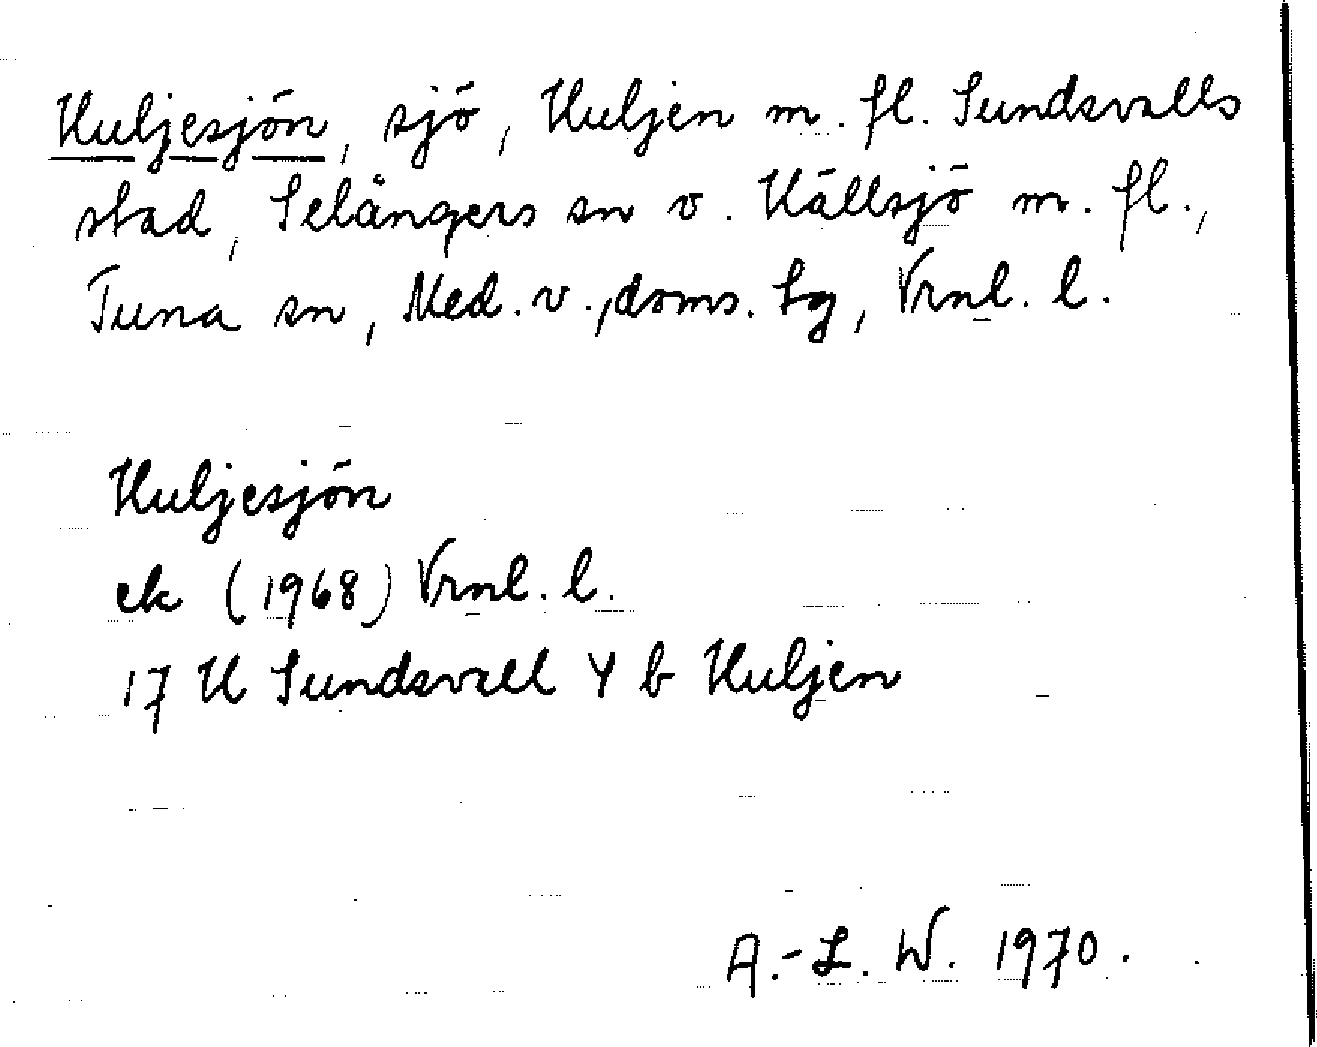 Huljesjön, sjö, Huljen m. fl. Sundsvalls
stad, Selångers sn o. Källsjö m. fl.,
Tuna sn, Med. v., doms. hg, Vrnl. l.
Huljesjön
ek (1968) Vrnl. l.
17 H Sundsvall 4 b Huljen
A.-L. W. 1970.